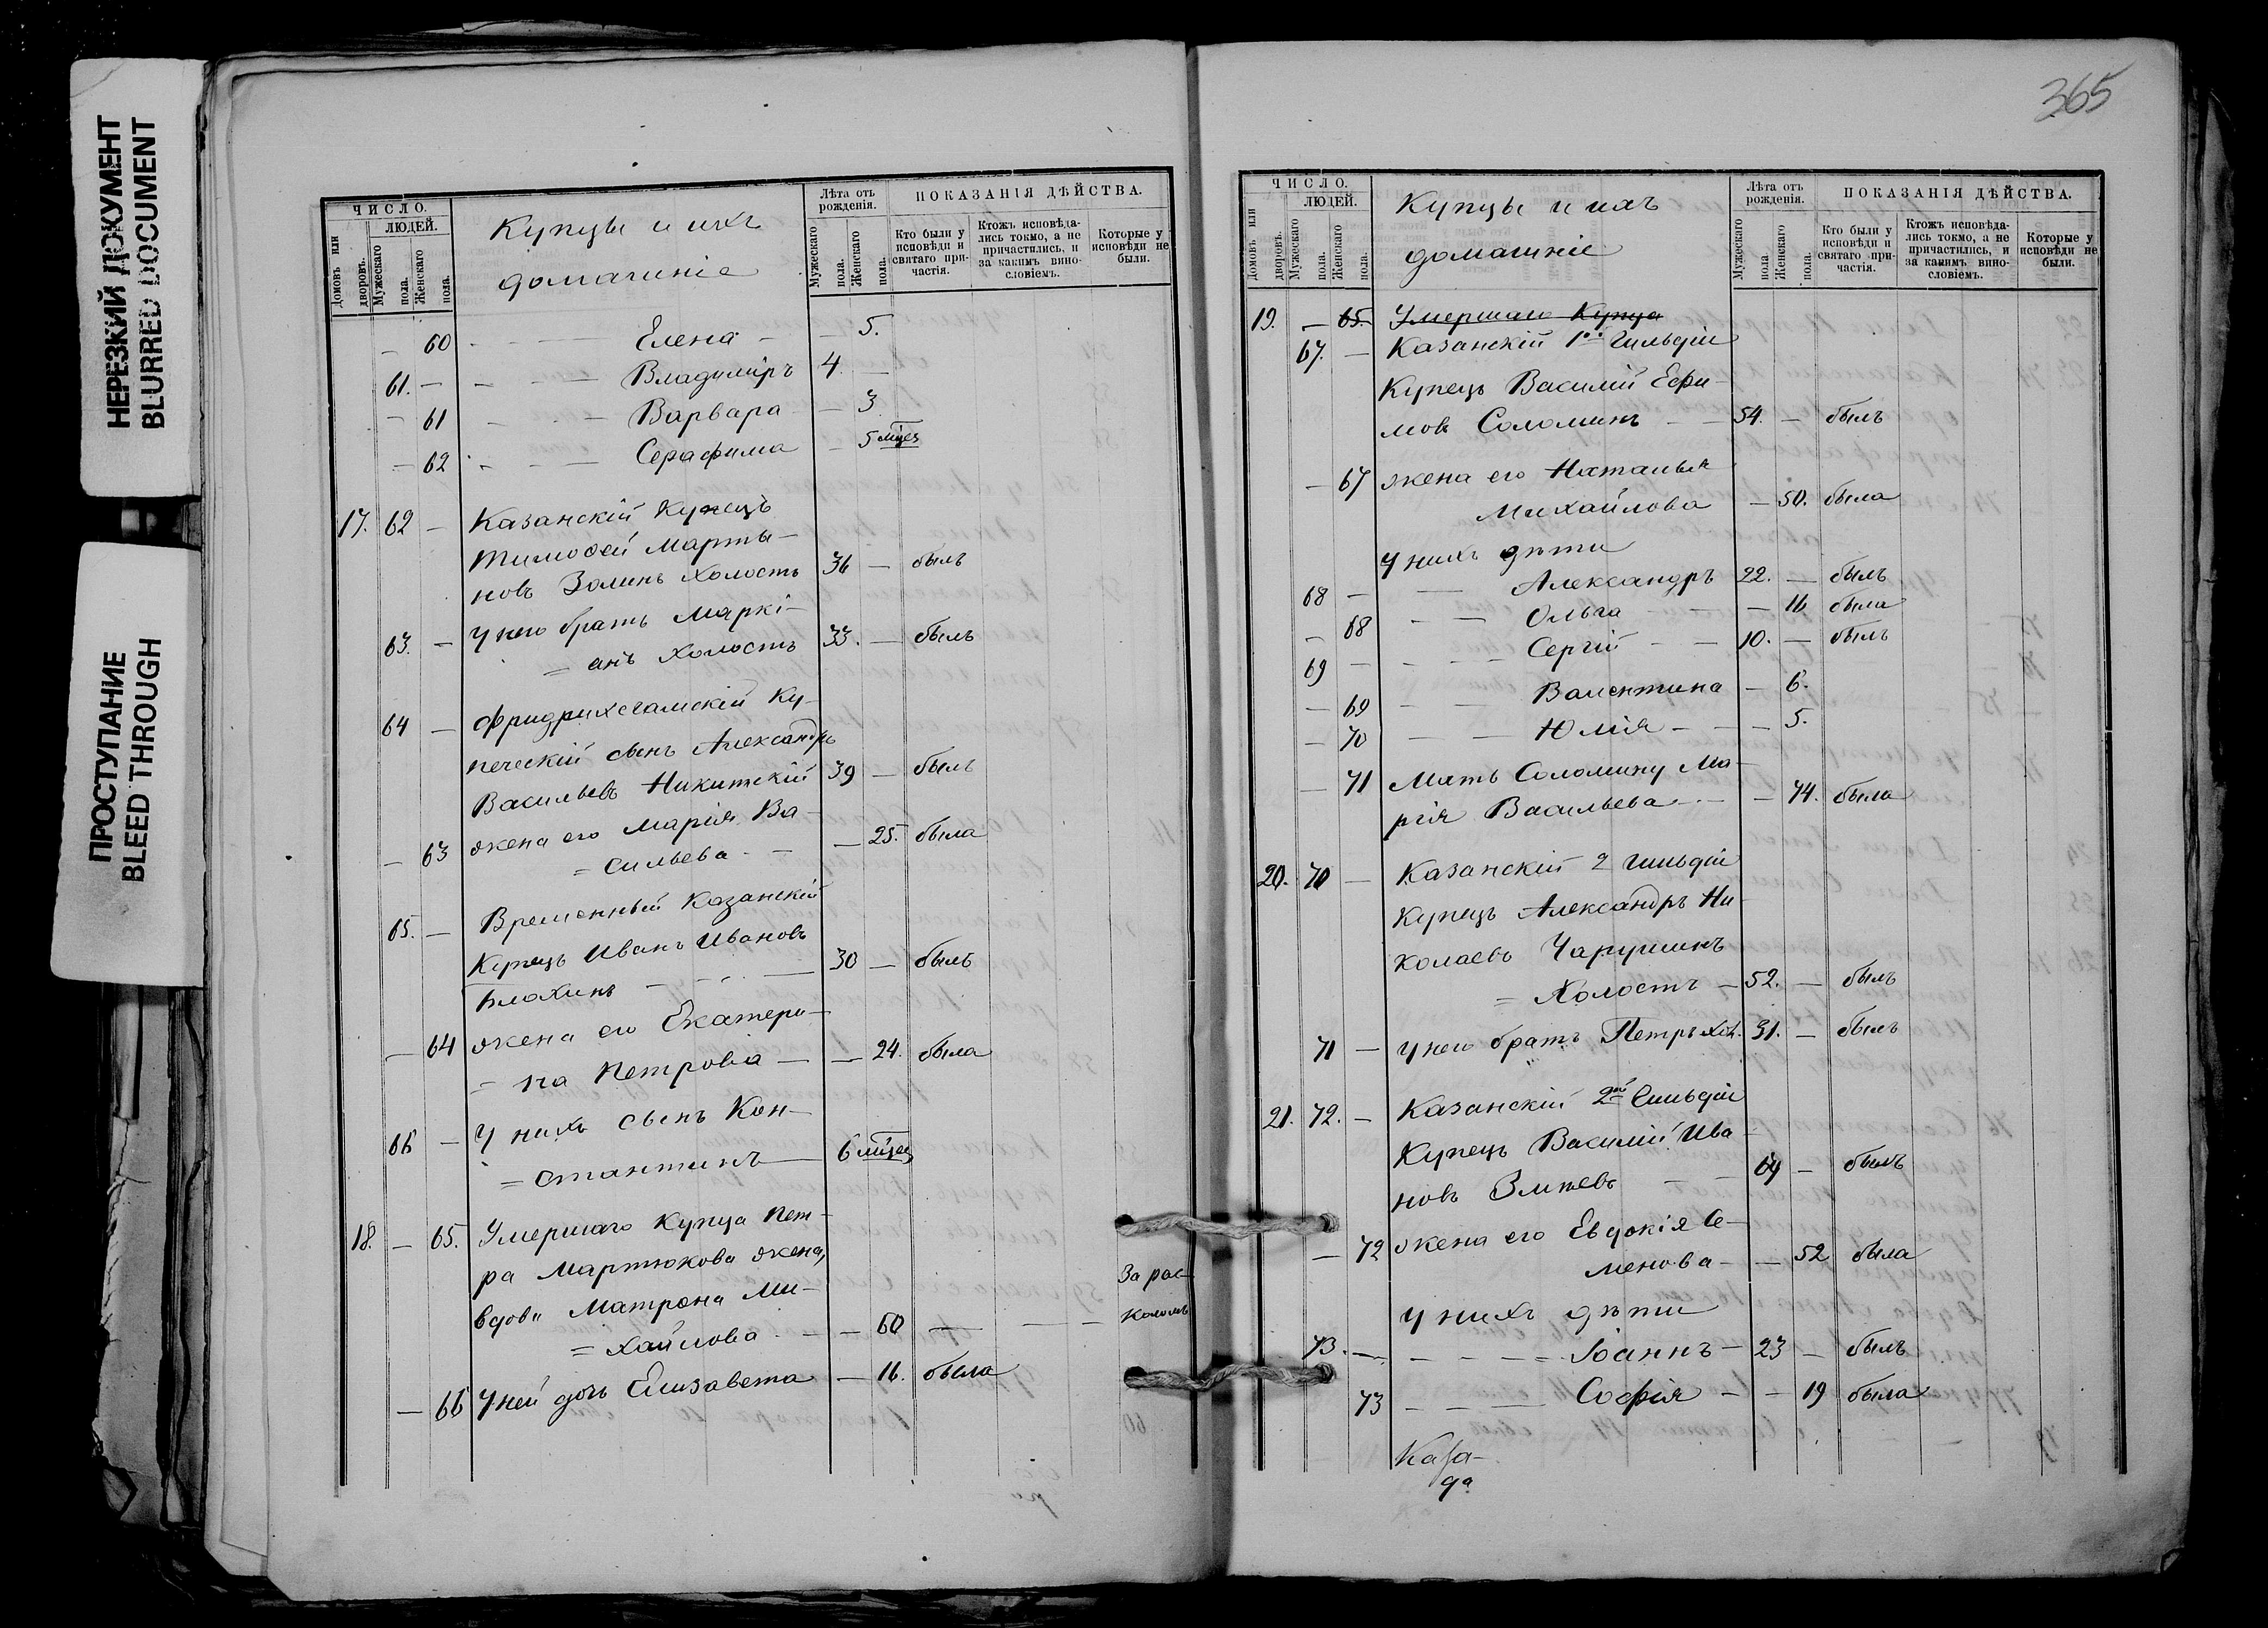 НЕРЕЗКИЙ ДОКУМЕНТ
BLURRED DOCUMENT
ПРОСТУПАНИЕ
BLEED THROUGH
ЧИСЛО.
ЛЮДЕЙ.
Домовъ или дворовъ.
Мужескаго пола.
Женскаго пола.
Купцы и ихъ
домашніе
Лѣта отъ рожденія.
Мужескаго пола.
Женскаго пола.
ПОКАЗАНІЯ ДѢЙСТВА.
Кто были у исповѣди и святаго причастія.
Ктожъ исповѣдались токмо, а не причастились, и за какимъ винословіемъ.
Которые у исповѣди не были.
— 60 — — Елена — — 5.
61. — — — Владиміръ 4. —
— 61 — — Варвара — 3
— 62 — — Серафима — 5 мцев
17. 62 — Казанскій Купецъ
Тимоѳей Марты-
новъ Золинъ холостъ 36 — былъ
63. — У него братъ Маркі-
= анъ холостъ 33. — былъ
64 — Фридрихсгамскій Ку-
печескій сынъ Александръ
Васильевъ Никитскій 39 — былъ
— 63 жена его Марія Ва-
= сильева — — 25. была
65. — Временный Казанскій
Купецъ Иванъ Ивановъ
Блохинъ — — 30 — былъ
— 64 жена его Екатери-
= на Петрова — — 24. была
66 — У нихъ сынъ Кон-
= стантинъ 6 мцев
18. — 65. Умершаго купца Пет-
ра Мартюкова жена,
вдова Матрона Ми-
= хайлова — — 60 — — — За рас-
коломъ
— 66 У ней дочь Елизавета — 16. была
365
ЧИСЛО.
ЛЮДЕЙ.
Домовъ или дворовъ.
Мужескаго пола.
Женскаго пола.
Купцы и ихъ
домашніе
Лѣта отъ рожденія.
Мужескаго пола
Женскаго пола.
ПОКАЗАНІЯ ДѢЙСТВА.
Кто были у исповѣди и святаго причастія.
Ктожъ исповѣдались токмо, а не причастились, и за какимъ винословіемъ.
Которые у исповѣди не были.
19. — 65. Умершаго Купца
67. — Казанскій 1ой Гильдіи
Купецъ Василій Ефи-
мовъ Соломинъ — — 54. — былъ
— 67 жена его Наталья
Михайлова — 50. была
У нихъ дѣти
68 — — Александръ 22. — былъ
— 68 — — Ольга — — 16 была
69 — — — Сергій — — 10. — былъ
— 69 — — Валентина — 6.
— 70 — — Юлія — — — 5.
— 71 Мать Соломину Ма-
рія Васильева — — 74. была
20. 70 — Казанскій 2 гильдіи
Купецъ Александръ Ни-
колаевъ Чарушинъ
= Холостъ — 52. — былъ
71 — У него братъ Петръ хол. 31. — былъ
21. 72. — Казанскій 2й Гильдіи
Купецъ Василій Ива-
новъ Змѣевъ — — 64 — былъ
— 72 жена его Евдокія Се-
менова — — 52 была
У нихъ дѣти
73. — — — Іоаннъ — 23 — былъ
73 — — — Софія — — 19 была